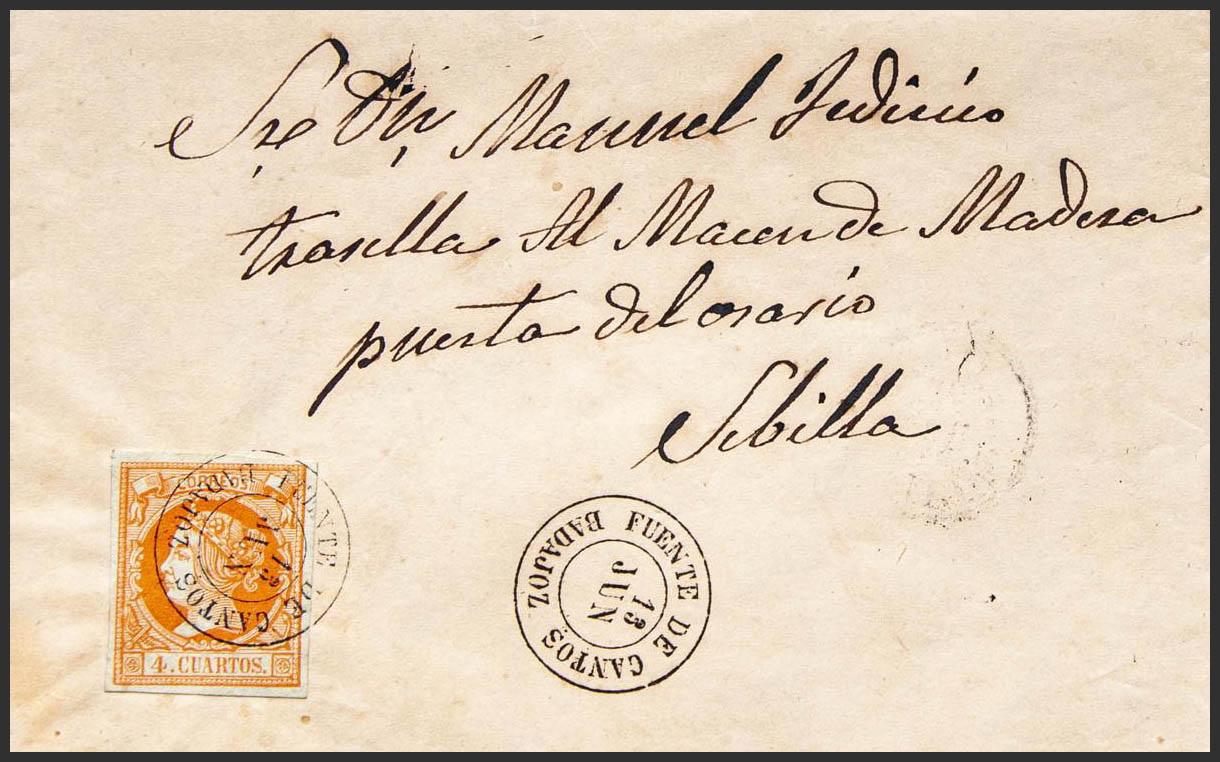 Sre Dn Manuel
trasella Al Macen de Madera
puerta del osario
Sebilla
CORREOS
4. CUARTOS.
FUENTE DE CANTOS BADAJOZ
13
JUN
FUENTE DE CANTOS BADAJOZ
13
JUN